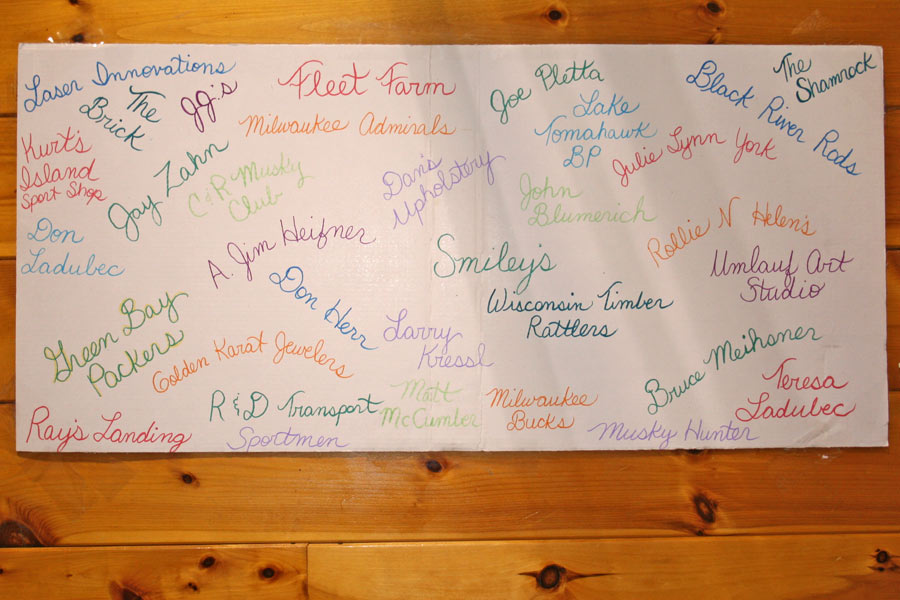 Laser Innovations
The
Brick
JJ's
Fleet Farm
Joe Pletta
Black River Rods
The
Shamrock
Kurt's
Island
Sport Shop
Jay Zahn
Milwaukee Admirals
C & R Musky
Club
Dan's
Upholstery
Lake
Tomahawk
BP
Julie Lynn York
John
Blumerich
Don
Ladubec
A. Jim Heifner
Smiley's
Rollie N Helen's
Umlauf Art
Studio
Don Herr
Wisconsin Timber
Rattlers
Green Bay
Packers
Golden Karat Jewelers
Larry
Kressl
Bruce Meihaner
Teresa
Ladubec
Ray's Landing
R & D Transport
Sportmen
Matt
McCumber
Milwaukee
Bucks
Musky Hunter